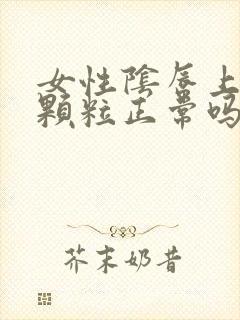 女性陰唇上
顆粒正常吗
芥末奶昔